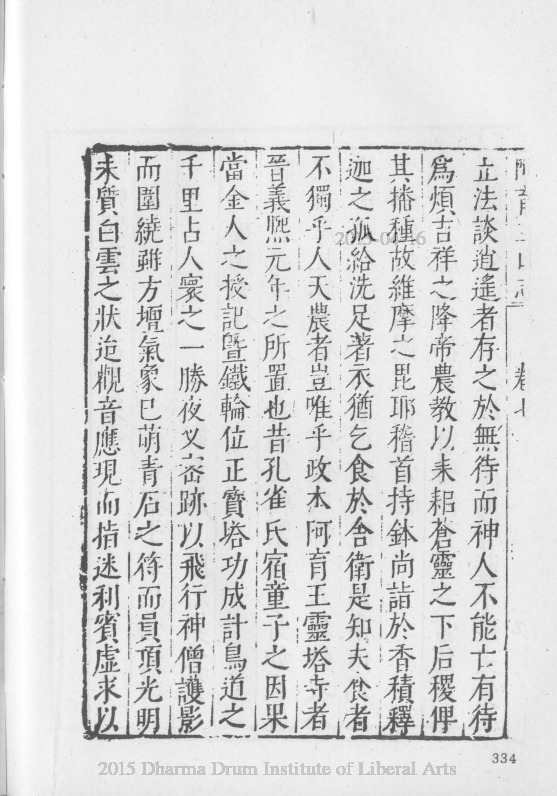 阿育王山志 卷七
立法談逍遙者存之於無待而神人不能亡有待
爲煩吉祥之降帝農教以耒耜蒼靈之下后稷俾
其播種故維摩之毘耶稽首持鉢尚詣於香積釋
迦之孤給洗足著衣猶乞食於舍衛是知夫食者
不獨乎人天農者豈唯乎政本阿育王靈塔寺者
晉義熙元年之所置也昔孔雀氏宿童子之因果
當金人之授記曁鐵輪位正寶塔功成計鳥道之
千里占人寰之一勝夜叉密跡以飛行神僧護影
而圍繞雖方壇氣象已萌青石之符而員項光明
未質白雲之狀迨觀音應現而指迷利賓虛求以
334
2015 Dharma Drum Institute of Liberal Arts